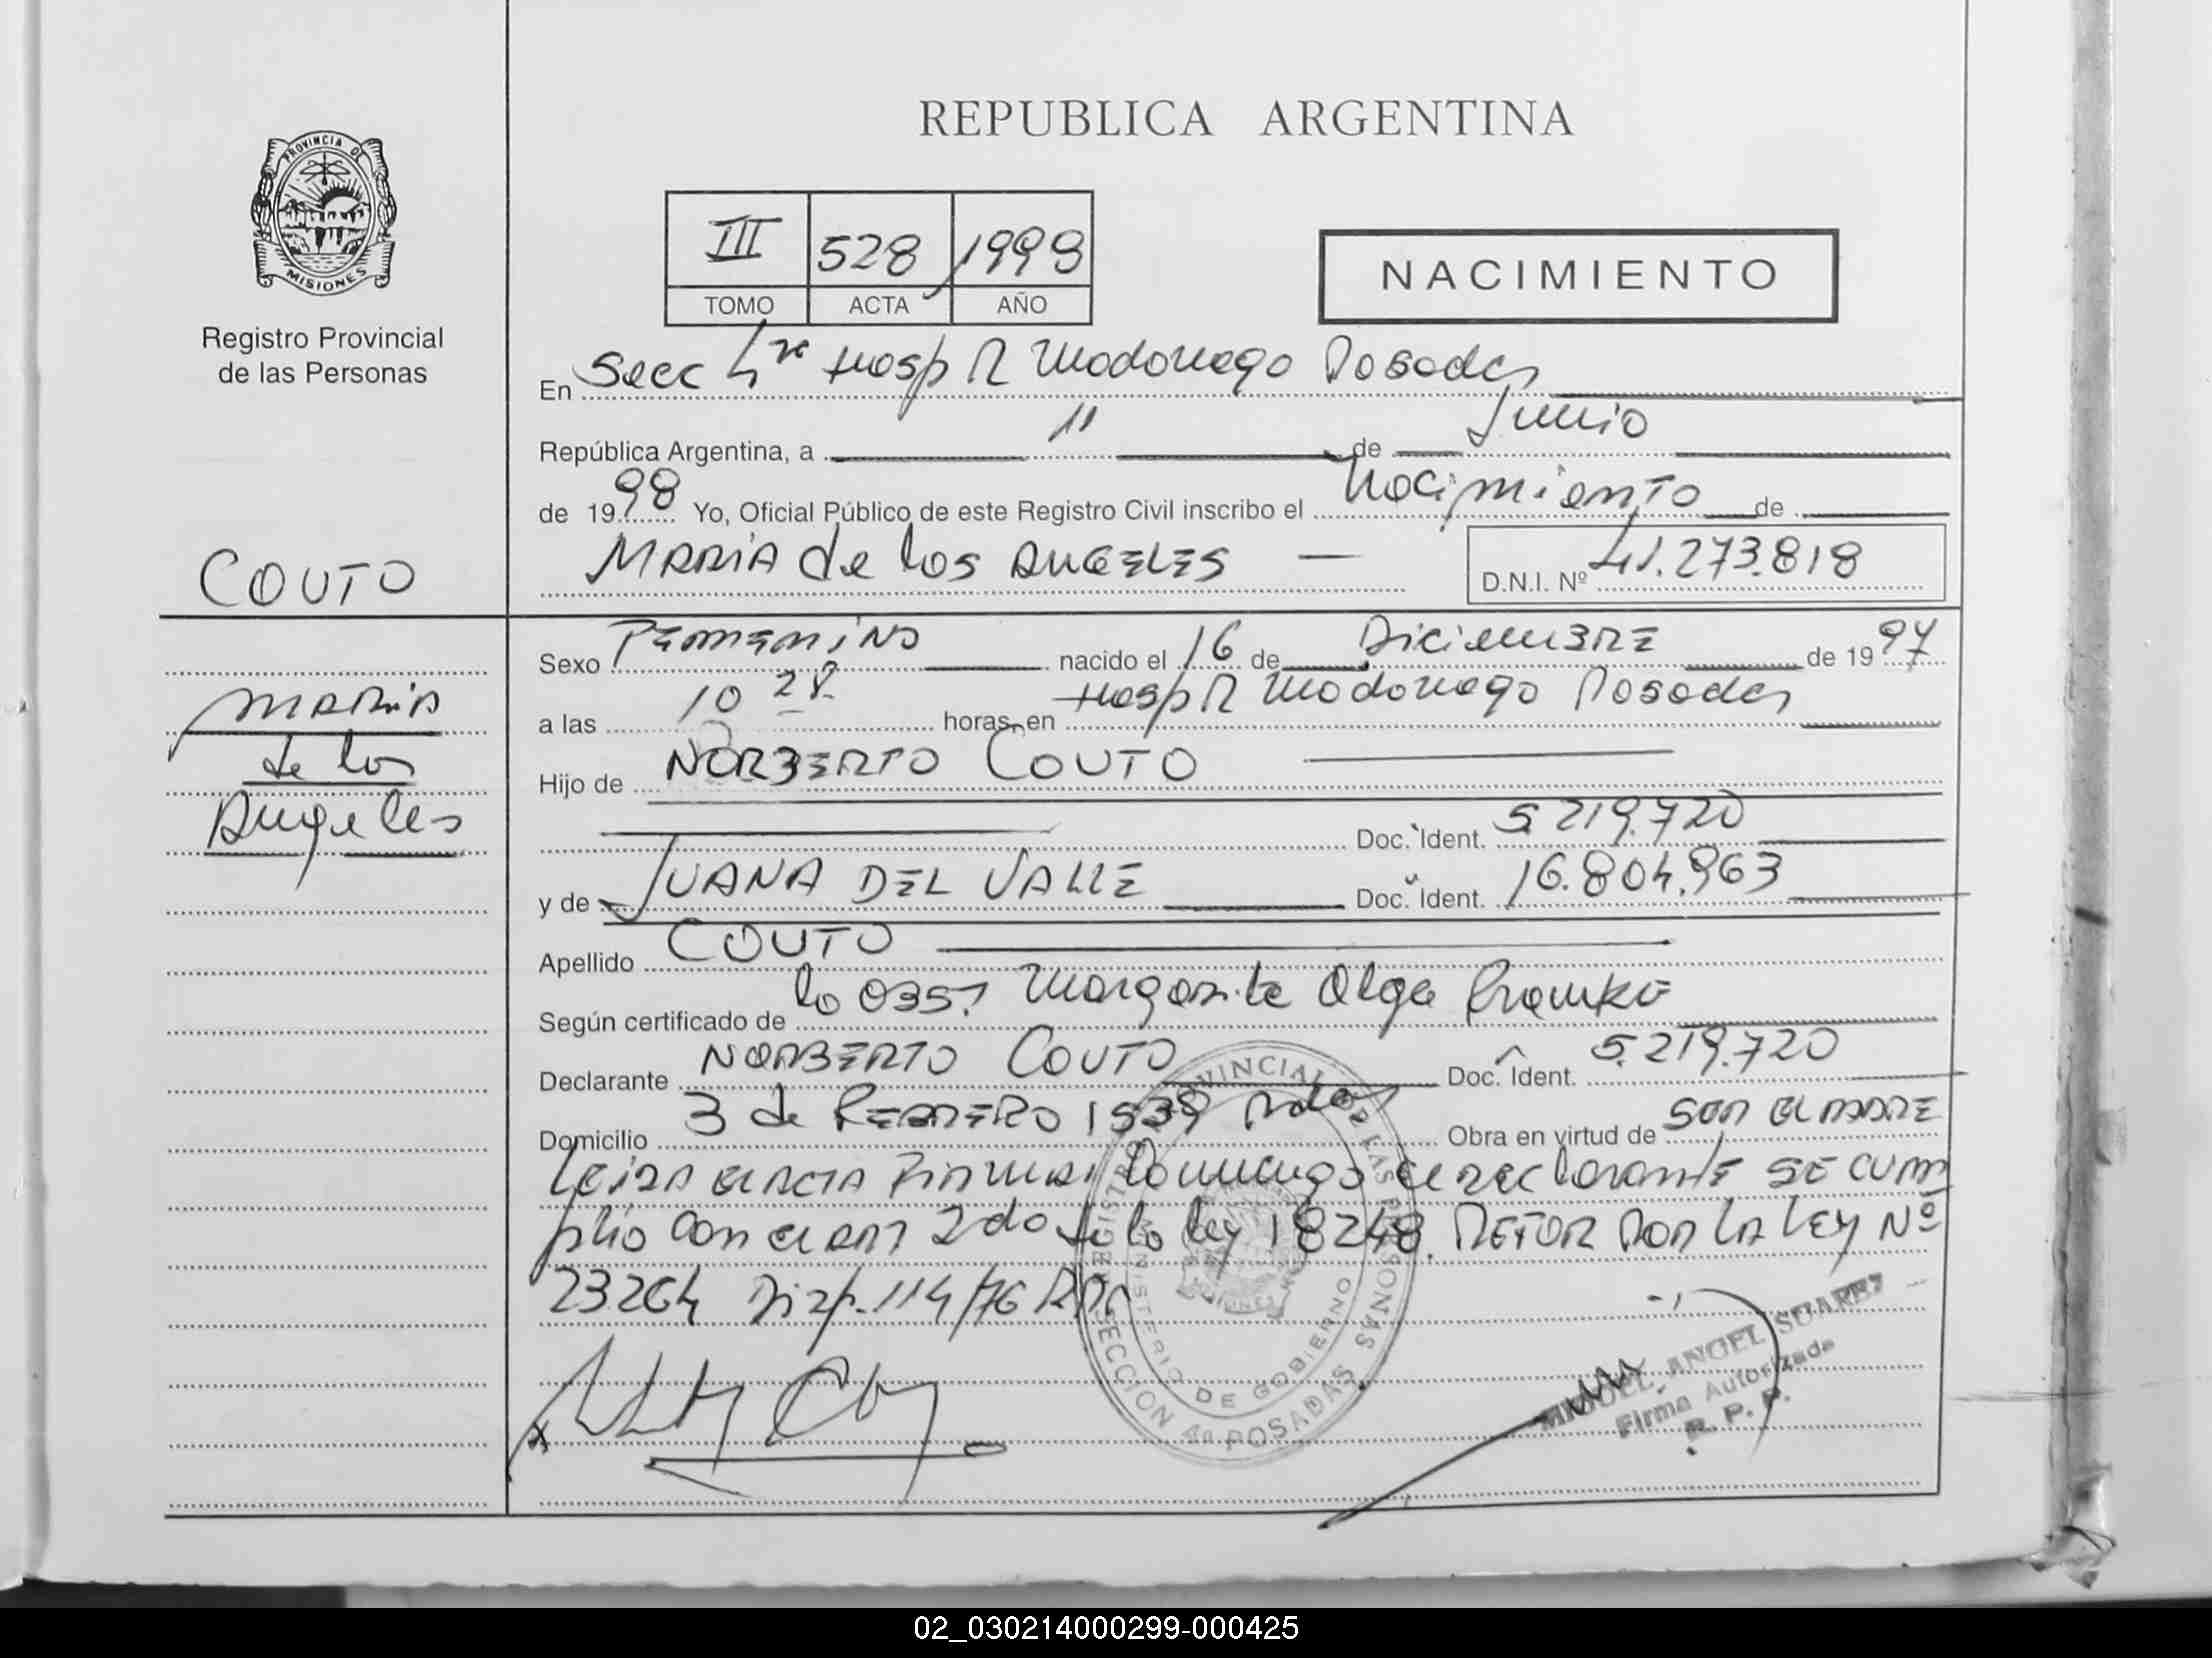 REPUBLICA ARGENTINA
PROVINCIA DE
MISIONES
Registro Provincial
de las Personas
III 528 1998
TOMO ACTA AÑO
NACIMIENTO
En Secc 4ta Hosp R Madariaga Posadas
República Argentina, a 11 de Junio
de 1998 Yo, Oficial Público de este Registro Civil inscribo el Nacimiento de
MARIA de los ANGELES — D.N.I. Nº 41.273.818
COUTO
MARIA
de los
Angeles
Sexo FEMENINO nacido el 16 de DiciEMBRE de 1997
a las 10 28 horas, en Hosp R Madariaga Posadas
Hijo de NORBERTO COUTO
Doc. Ident. 5.219.720
y de JUANA DEL VALLE Doc. Ident. 16.804.963
Apellido COUTO
Según certificado de la Obst. Margarita Olga
Declarante NORBERTO COUTO Doc. Ident. 5.219.720
Domicilio 3 de FEBRERO 1539 Pdas Obra en virtud de SER EL PADRE
LEIDA EL ACTA FIRMA el declarante SE CUM
plio con el ART 2do de la ley 18248. REFOR POR LA LEY Nº
23264 Disp. 114/76 RPP
REGISTRO PROVINCIAL DE LAS PERSONAS
MINISTERIO DE GOBIERNO
SECCION 4a POSADAS
MIGUEL ANGEL SUAREZ
Firma Autorizada
R. P. P.
02_030214000299-000425